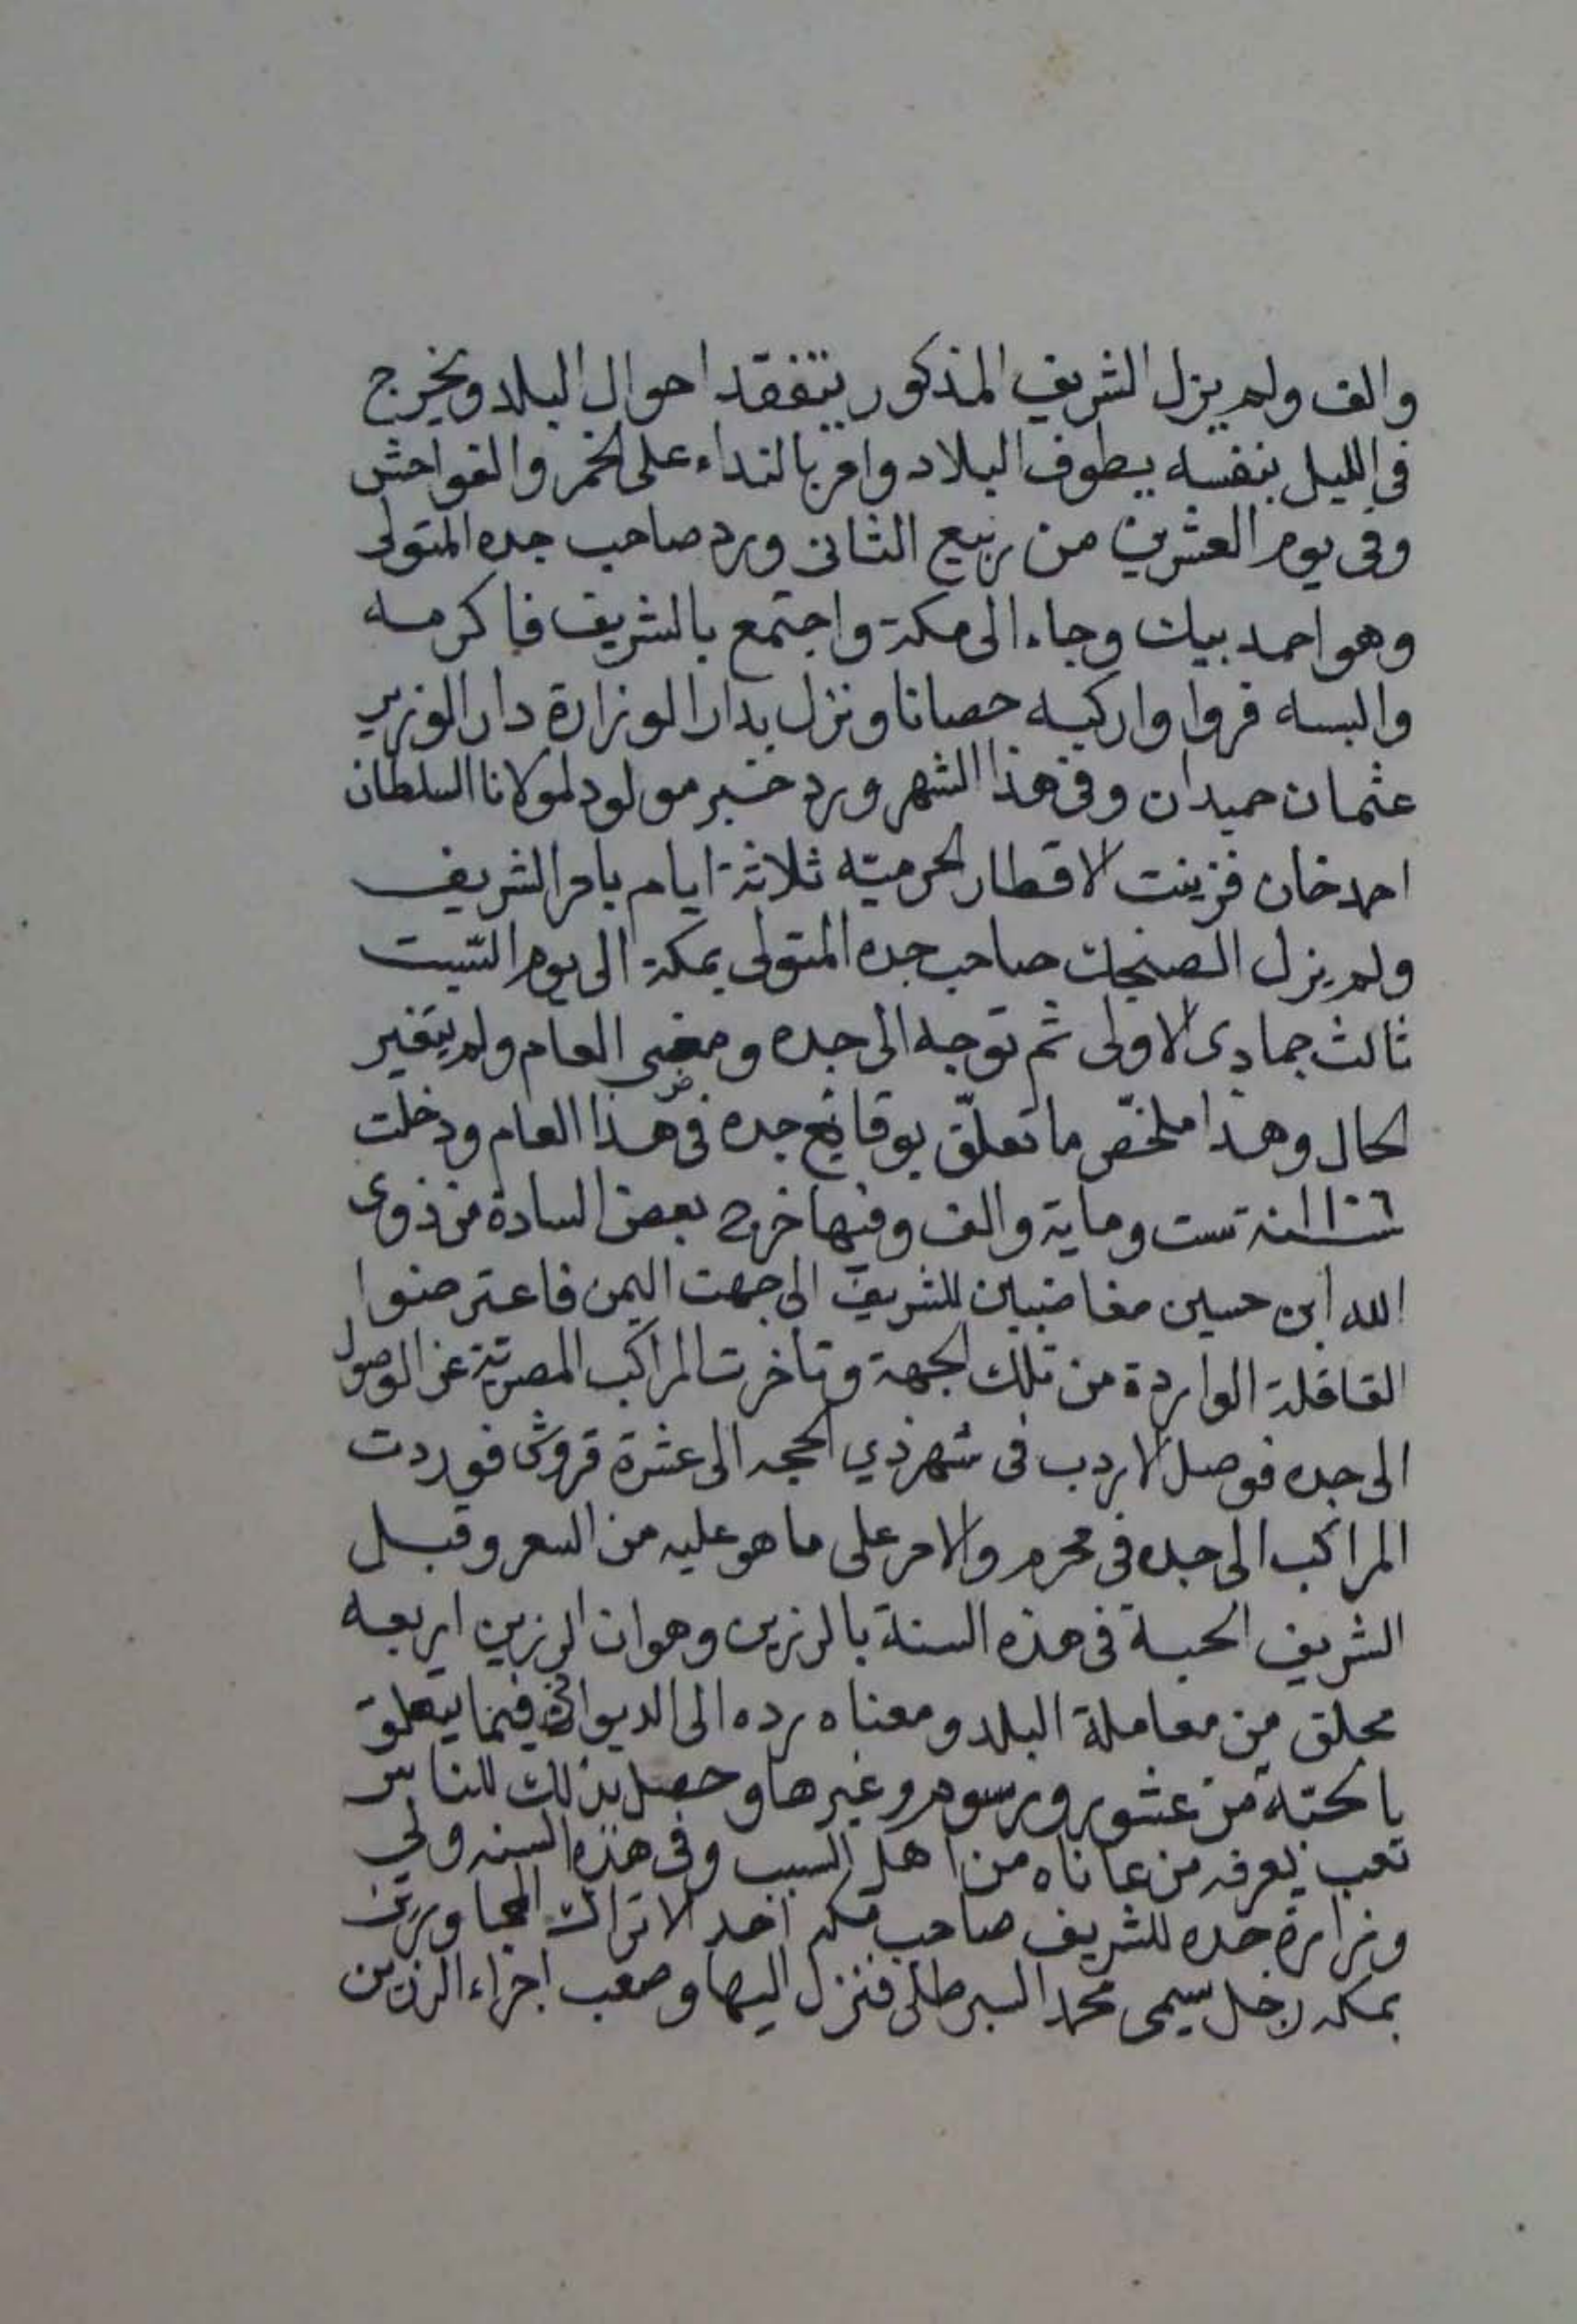 والف ولم يزل الشريف المذكور يتفقد احوال البلد ويخرج
في الليل بنفسه يطوف البلاد وامر بالنداء على الخمر والفواحش
وفي يوم العشرين من ربيع الثاني ورد صاحب جده المتولى
وهو احمد بيك وجاء الى مكة واجتمع بالشريف فاكرمه
والبسه فروا واركبه حصانا ونزل بدار الوزارة دار الوزير
عثمان حميدان وفي هذا الشهر ورد خبر مولود لمولانا السلطان
احمد خان فزينت الاقطار الحرميه ثلاثة ايام بامر الشريف
ولم يزل الصنجك صاحب جده المتولى بمكة الى يوم السبت
ثالث جمادى الاولى ثم توجه الى جده ومضى العام ولم يتغير
الحال وهذا ملخّص ما تعلّق بوقايع جده في هذا العام ودخلت
سنة ١١٠٦ ست وماية والف وفيها خرج بعض السادة من ذوى
الله ابن حسين مغاضبين للشريف الى جهت اليمن فاعترضوا
القافلة الواردة من تلك الجهة وتاخرت المراكب المصرية عن الوصول
الى جده فوصل الاردب في شهر ذي الحجه الى عشرة قروش فوردت
المراكب الى جده في محرم والامر على ما هو عليه من السعر وقبل
الشريف الحبة في هذه السنة بالرزين وهو ان الرزين اربعه
محلق من معاملة البلد ومعناه رده الى الديوان فيما يتعلق
بالحبّة من عشور ورسوم وغيرها وحصل بذلك للناس
تعب يعرفه من عاناه من اهل السبب وفي هذه السنه ولي
وزارة جده للشريف صاحب مكه احد الاتراك المجاورين
بمكه رجل سيمى محمد السبرطلى فنزل اليها وصعب اجراء الرزين